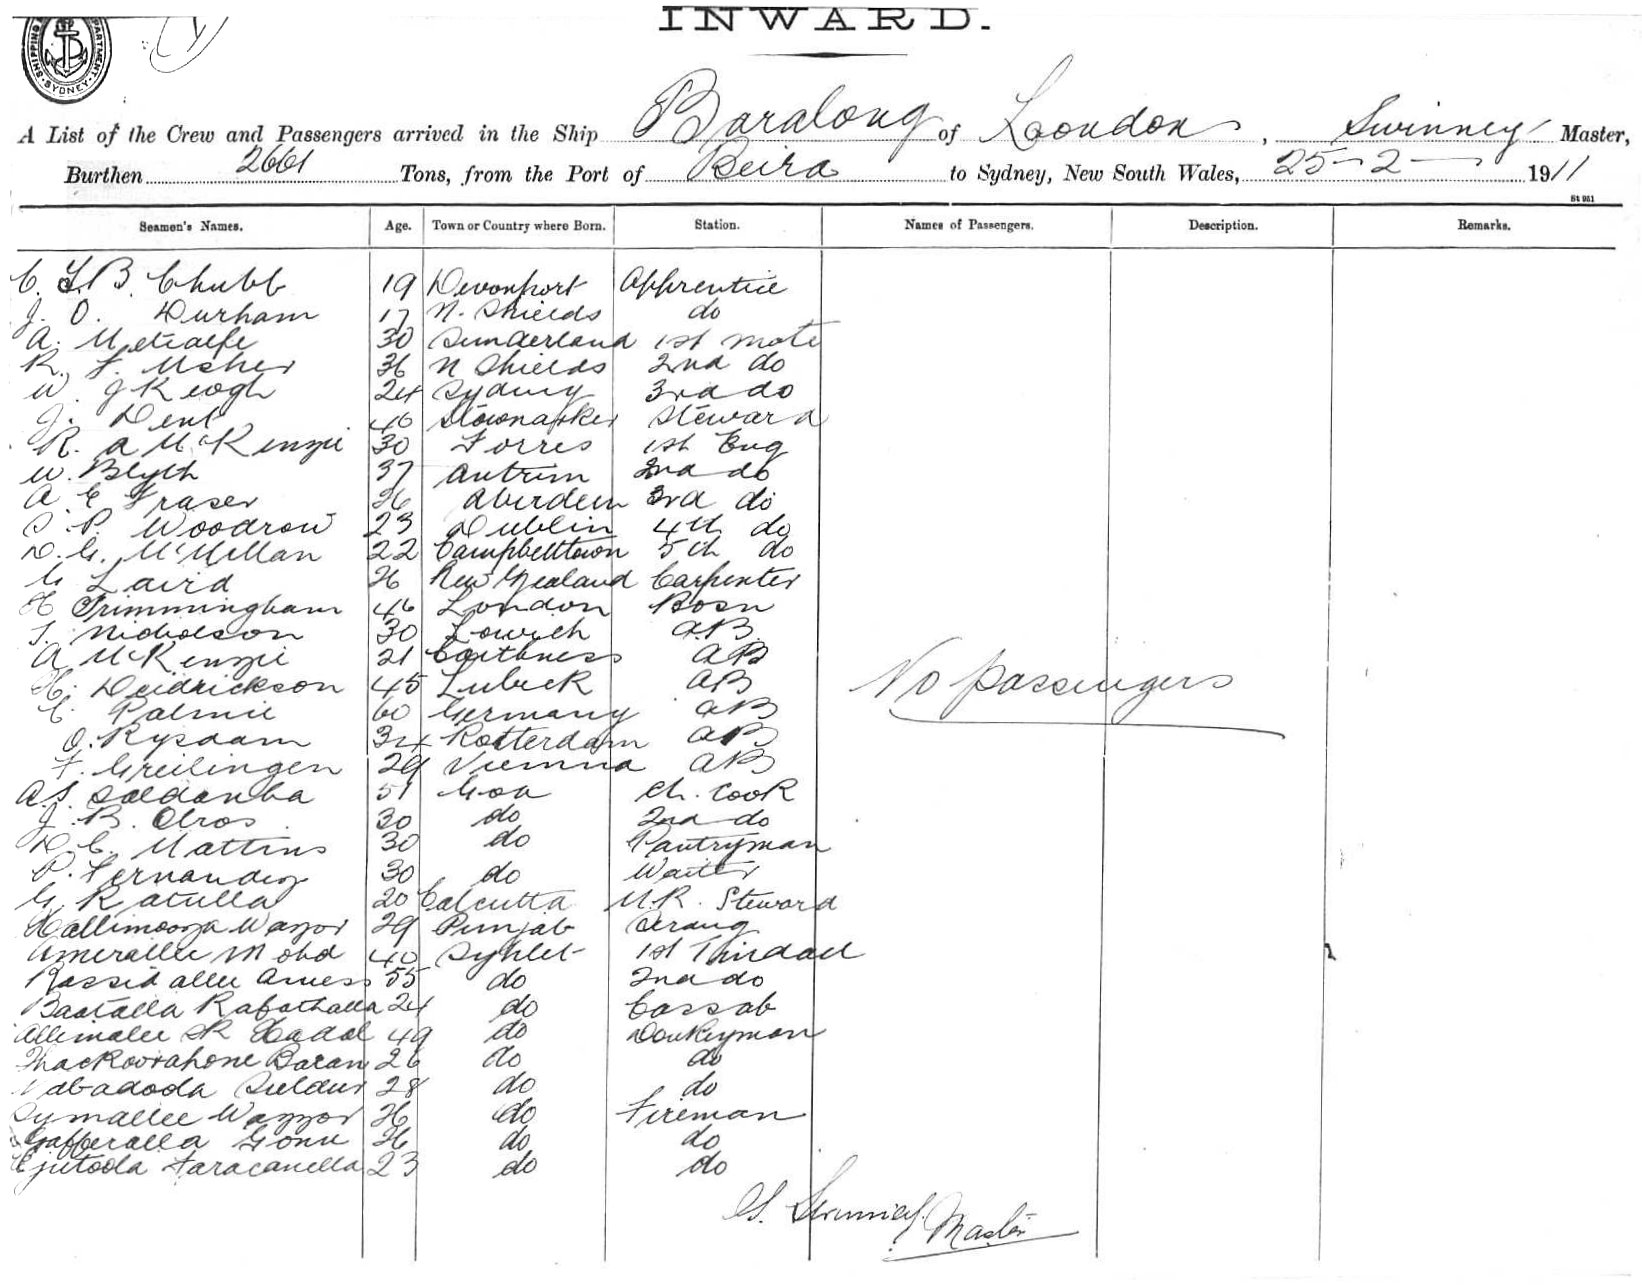 INWARD.
SHIPPING DEPARTMENT. SYDNEY
A List of the Crew and Passengers arrived in the Ship Baralong of London, Swinney Master,
Burthen 2661 Tons, from the Port of Beira to Sydney, New South Wales, 25-2-1911
St 951
Seamen's Names. Age. Town or Country where Born. Station. Names of Passengers. Description. Remarks.
C. F. B. Chubb 19 Devonport Apprentice
J. O. Durham 17 N. Shields do
A. Metcalfe 30 Sunderland 1st Mate
R. F. Usher 36 N Shields 2nd do
W. J Keogh 24 Sydney 3rd do
J. Dent 40 Stowmarket Steward
R. A McKenzie 30 Forres 1st Eng
W. Blyth 37 Antrim 2nd do
A. E Fraser 26 Aberdeen 3rd do
S. P. Woodrow 23 Dublin 4th do
D. G. McMillan 22 Campbelltown 5th do
G Laird 26 New Zealand Carpenter
H Trimmingham 46 London Bosn
T. Nicholson 30 Lowick A.B.
A McKenzie 21 Caithness AB
H. Deidrickson 45 Lubeck AB
C. Palmie 60 Germany AB
O. Rysdam 34 Rotterdam AB
F. Greilingen 29 Vienna AB
A. S. Saldanha 51 Goa Ch. Cook
J. B. Obros 30 do 2nd do
D. C. Mattins 30 do Pantryman
P. Fernandez 30 do Waiter
G. Katulla 20 Calcutta M.R. Steward
Kallimooza Wazzor 29 Punjab Serang
Amerallee Mohd 40 Sylhet 1st Thindall
Rassid allee Amess 55 do 2nd do
Bastalla Rafathalla 24 do Cassab
Allimalee SK Kadal 49 do Donkeyman
Thackoorahone Baran 26 do do
Abadoola Suldur 28 do do
Symallee Wazzor 26 do Fireman
Gafferalla Gonu 26 do do
Ejutoola Faracanulla 23 do do
No passengers
G. Swinney Master